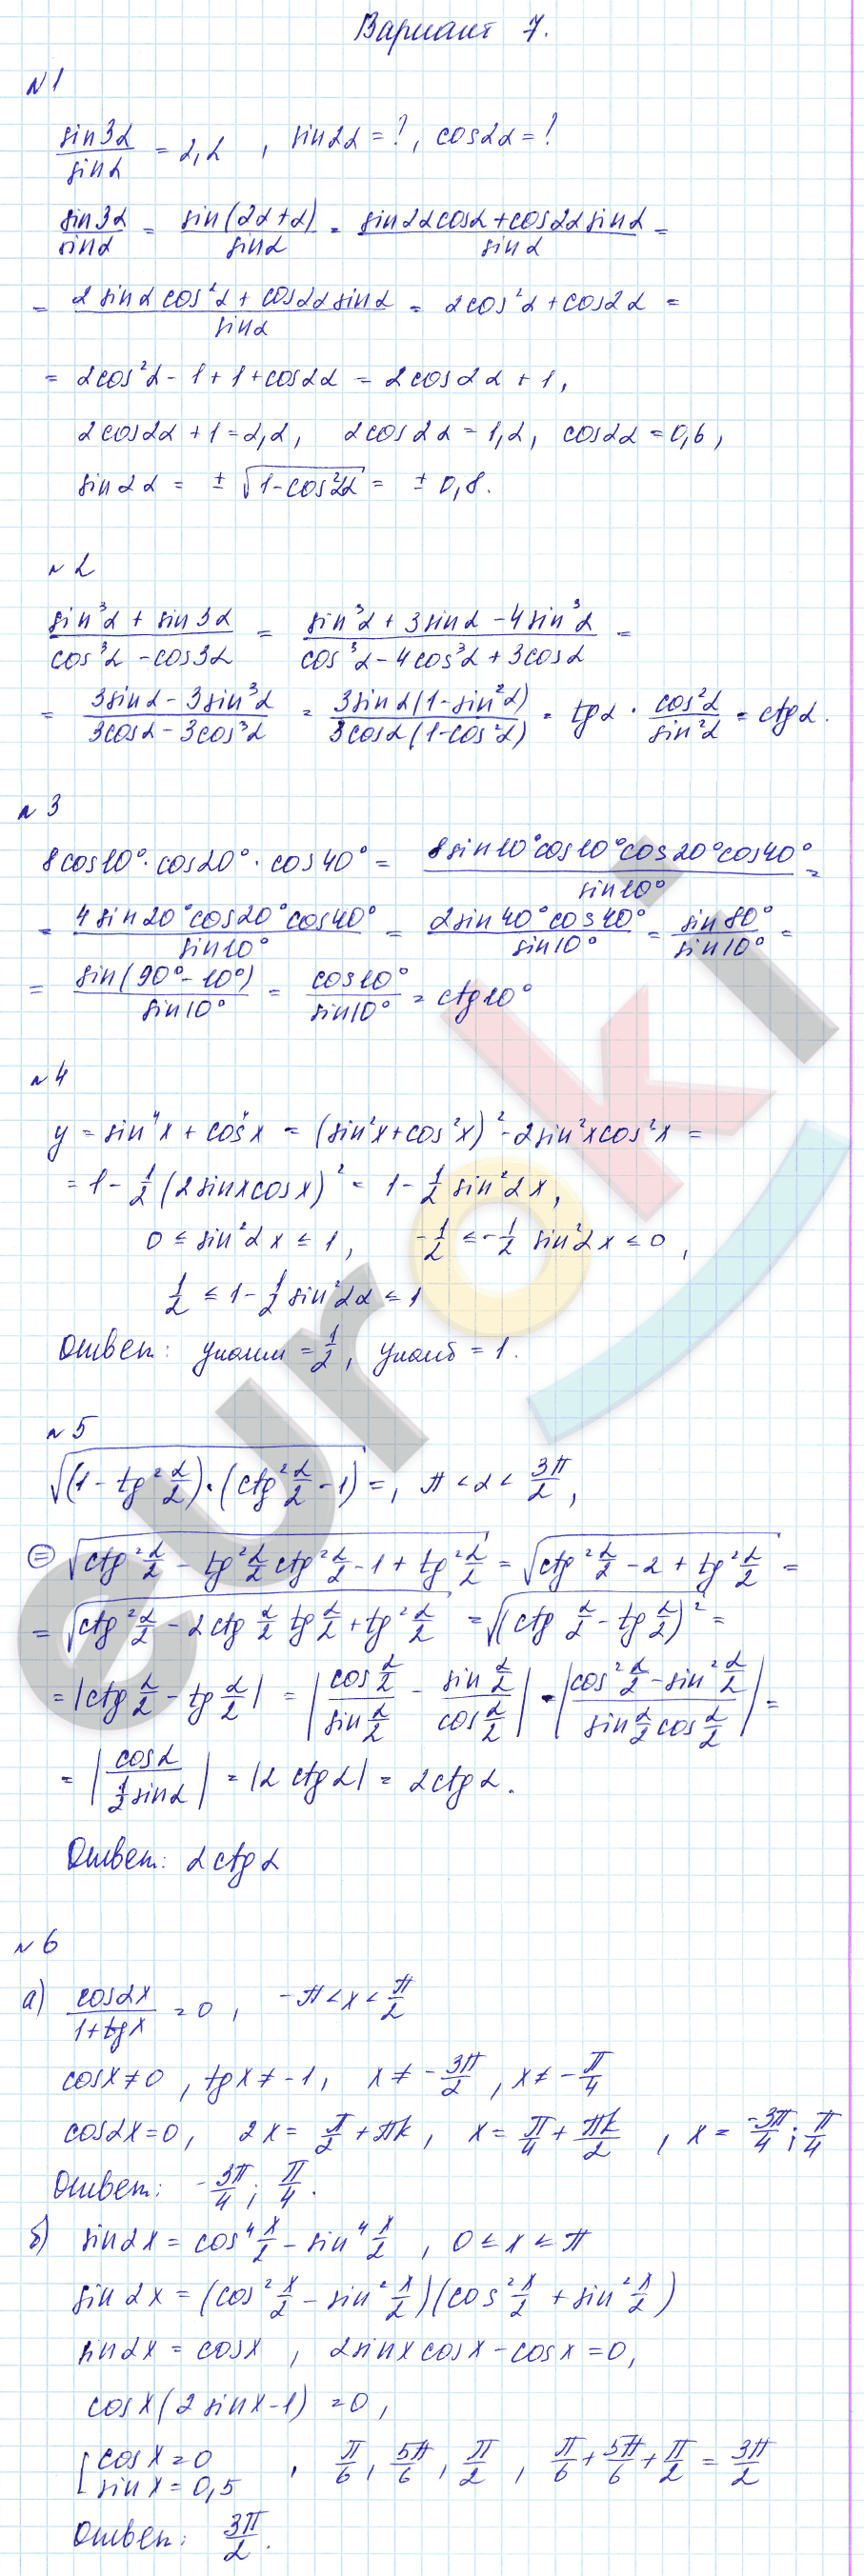 Вариант 7.
№1
sin3α/sinα = 2,2 , sin2α = ?, cos2α = ?
sin3α/sinα = sin(2α+α)/sinα = (sin2αcosα+cos2αsinα)/sinα =
= (2sinαcos²α + cos2αsinα)/sinα = 2cos²α + cos2α =
= 2cos²α - 1 + 1 + cos2α = 2cos2α + 1,
2cos2α + 1 = 2,2, 2cos2α = 1,2, cos2α = 0,6,
sin2α = ± √(1-cos²2α) = ± 0,8.
№2
(sin³α + sin3α)/(cos³α - cos3α) = (sin³α + 3sinα - 4sin³α)/(cos³α - 4cos³α + 3cosα) =
= (3sinα - 3sin³α)/(3cosα - 3cos³α) = 3sinα(1-sin²α)/3cosα(1-cos²α) = tgα · cos²α/sin²α = ctgα.
№3
8cos10°·cos20°·cos40° = 8sin10°cos10°cos20°cos40°/sin10° =
= 4sin20°cos20°cos40°/sin10° = 2sin40°cos40°/sin10° = sin80°/sin10° =
= sin(90°-10°)/sin10° = cos10°/sin10° = ctg10°
№4
y = sin⁴x + cos⁴x = (sin²x+cos²x)² - 2sin²xcos²x =
= 1 - 1/2 (2sinxcosx)² = 1 - 1/2 sin²2x,
0 ≤ sin²2x ≤ 1, -1/2 ≤ -1/2 sin²2x ≤ 0,
1/2 ≤ 1 - 1/2 sin²2α ≤ 1
Ответ: yнаим = 1/2, yнаиб = 1.
№5
√((1 - tg²α/2)·(ctg²α/2 - 1)) =, π < α < 3π/2,
⊜ √(ctg²α/2 - tg²α/2 ctg²α/2 - 1 + tg²α/2) = √(ctg²α/2 - 2 + tg²α/2) =
= √(ctg²α/2 - 2ctg α/2 tg α/2 + tg²α/2) = √((ctg α/2 - tg α/2)²) =
= |ctg α/2 - tg α/2| = |cos α/2 / sin α/2 - sin α/2 / cos α/2| = |(cos²α/2 - sin²α/2)/(sin α/2 cos α/2)| =
= |cosα / (1/2 sinα)| = |2ctgα| = 2ctgα.
Ответ: 2ctgα
№6
а) cos2x/(1+tgx) = 0, -π < x < π/2
cosx ≠ 0, tgx ≠ -1, x ≠ -3π/2, x ≠ -π/4
cos2x = 0, 2x = π/2 + πk, x = π/4 + πk/2, x = -3π/4; π/4
Ответ: -3π/4; π/4.
б) sin2x = cos⁴x/2 - sin⁴x/2, 0 ≤ x ≤ π
sin2x = (cos²x/2 - sin²x/2)(cos²x/2 + sin²x/2)
sin2x = cosx, 2sinxcosx - cosx = 0,
cosx(2sinx-1) = 0,
[cosx = 0
sinx = 0,5 , π/6, 5π/6, π/2, π/6 + 5π/6 + π/2 = 3π/2
Ответ: 3π/2.
euroki